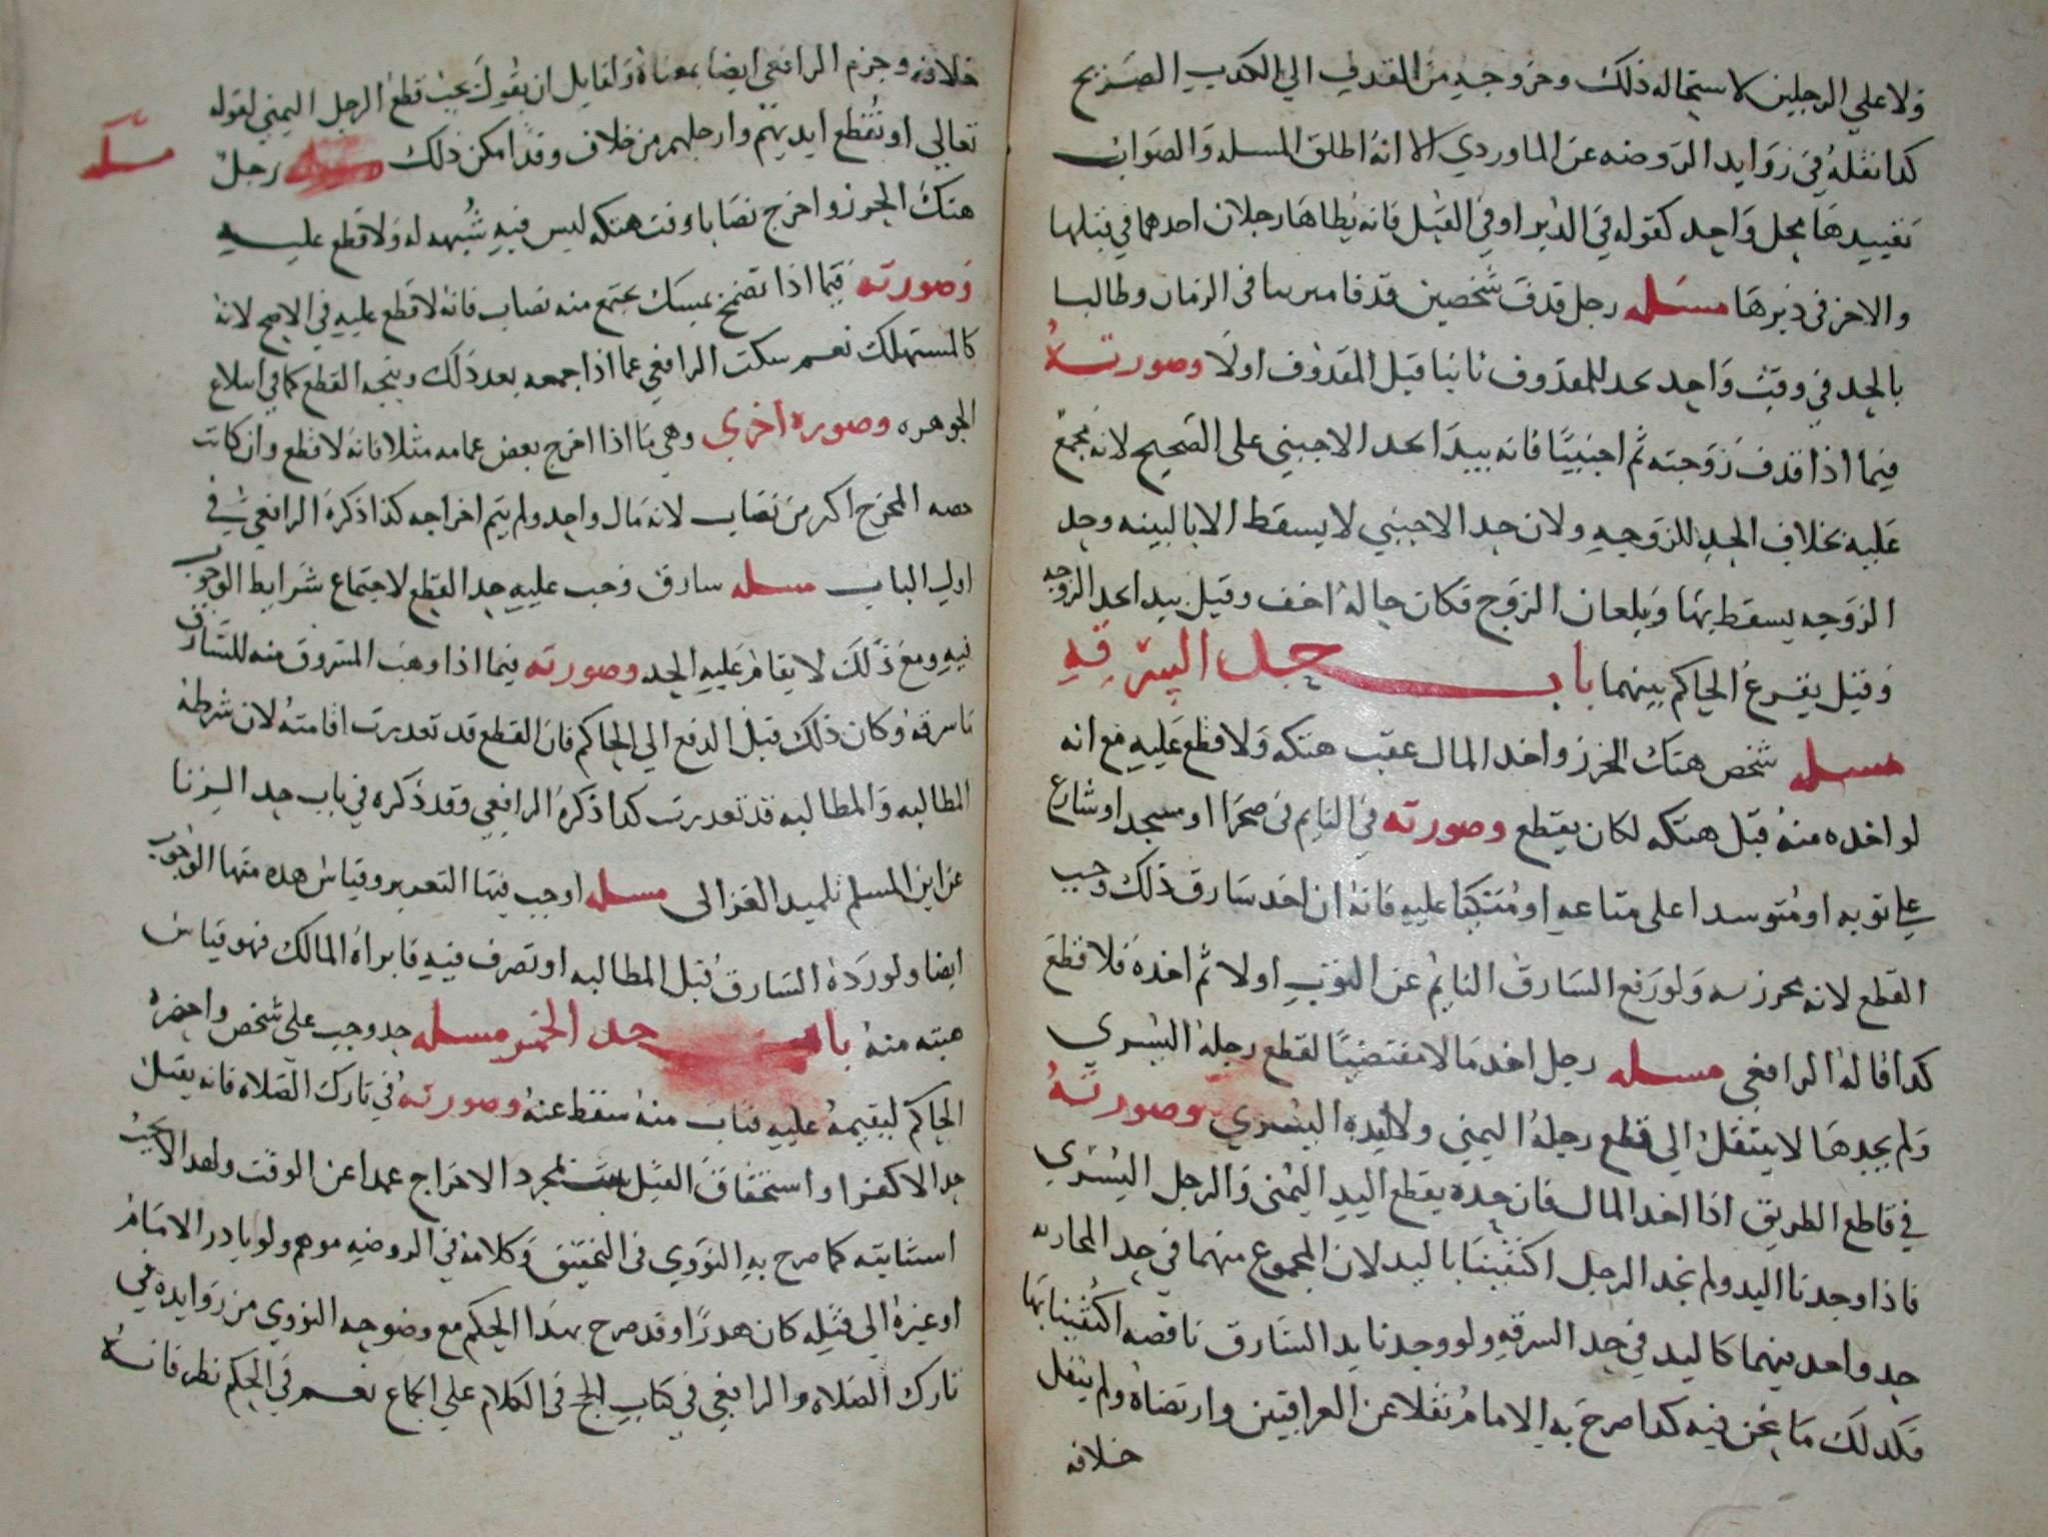 ولا على الرجلين لاستحاله ذلك وخروجه من القدف الي الكدب الصريح
كدا نقله في زوايد الروضه عن الماوردي الا انه اطلق المسله والصواب
تقييدها بمحل واحد كقوله في الدبر او في القبل فانه يطاها رجلان احدهما في قبلها
والاخر في دبرها مسله رجل قدف شخصين في الزمان وطالبا
بالحد في وقت واحد يحد للمقذوف ثانيا قبل المقذوف اولا وصورته
فيما اذا قذف زوجته ثم اجنبيا فانه يبدا بحد الاجنبي على الصحيح لانه مجمع
عليه بخلاف الحد للزوجه ولان حد الاجنبي لا يسقط الا بالبينه وحد
الزوجه يسقط بها وبلعان الزوج فكان حاله اخف وقيل يبدا بحد الزوجه
وقيل يقرع الحاكم بينهما باب حد السرقه
مسله شخص هتك الحرز واخد المال عقب هتكه ولا قطع عليه مع انه
لو اخده منه قبل هتكه لكان يقطع وصورته في النايم في صحرا او مسجد او شارع
علي توبه او متوسدا على متاعه او متكيا عليه فانه ان اخد سارق ذلك وجب
القطع لانه محرز به ولو رفع السارق النايم عن الثوب اولا ثم اخده فلا قطع
كدا قاله الرافعي مسله رجل اخد مالا مقتضيا لقطع رجله اليسري
ولم يجدها لا ينتقل الي قطع رجله اليمني ولا ليده اليسري وصورته
في قاطع الطريق اذا اخد المال فان حده يقطع اليد اليمنى والرجل اليسري
فاذا وجدنا اليد ولم نجد الرجل اكتفينا باليد لان المجموع منهما في حد المحاربه
حد واحد فيهما كاليد في حد السرقه ولو وجدنا يد السارق ناقصه اكتفينا بها
فكدلك ما نحن فيه كدا صرح به الامام نقلا عن العراقيين وارتضاه ولم ينقل
خلافه
خلافه وجزم الرافعي ايضا بمعناه ولقايل ان يقول يجب قطع الرجل اليمني لقوله
تعالي او تقطع ايديهم وارجلهم من خلاف وقد امكن ذلك مسله رجل
مسله
هتك الحرز واخرج نصابا وقت هتكه ليس فيه شبهه له ولا قطع عليه
وصورته فيما اذا تضمخ بمسك يجتمع منه نصاب فانه لا قطع عليه في الاصح لانه
كالمستهلك نعم سكت الرافعي عما اذا جمعه بعد ذلك ويتجه القطع كما في ابتلاع
الجوهره وصوره اخري وهي ما اذا اخرج بعض عمامه مثلا فانه لا قطع وان كانت
حصه المخرج اكثر من نصاب لانه مال واحد ولم يتم اخراجه كذا ذكره الرافعي في
اول الباب مسله سارق وجب عليه حد القطع لاجتماع شرايط الوجوب
فيه ومع ذلك لا يقام عليه الحد وصورته فيما اذا وهب المسروق منه للسارق
ما سرقه وكان ذلك قبل الدفع الي الحاكم فان القطع قد تعدرت اقامته لان شرطه
المطالبه والمطالبه قد تعدرت كدا ذكره الرافعي وقد ذكره في باب حد الزنا
عن ابن المسلم تلميد الغزالى مسله اوجب فيها التعزير وقياس هده منها الوجوب
ايضا ولو رده السارق قبل المطالبه او تصرف فيه فابراه المالك فهو قياس
هبته منه باب حد الخمر مسله حد وجب على شخص واحضره
الحاكم ليقيمه عليه فتاب منه سقط عنه وصورته في تارك الصلاه فانه يقتل
حدا لا كفرا واستحقاق القتل بمجرد الاخراج عمدا عن الوقت ولهدا لا يجب
استتابته كما صرح به النووي في التحقيق وكلامه في الروضه موهم ولو بادر الامام
او غيره الي قتله كان هدرا وقد صرح بهذا الحكم مع وضوحه النووي من زوايده في
تارك الصلاه والرافعي في كتاب الحج في الكلام على الجماع نعم في الحكم نظر فانه